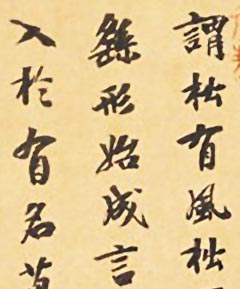 謂松有風松
繇形始成言
入於有名